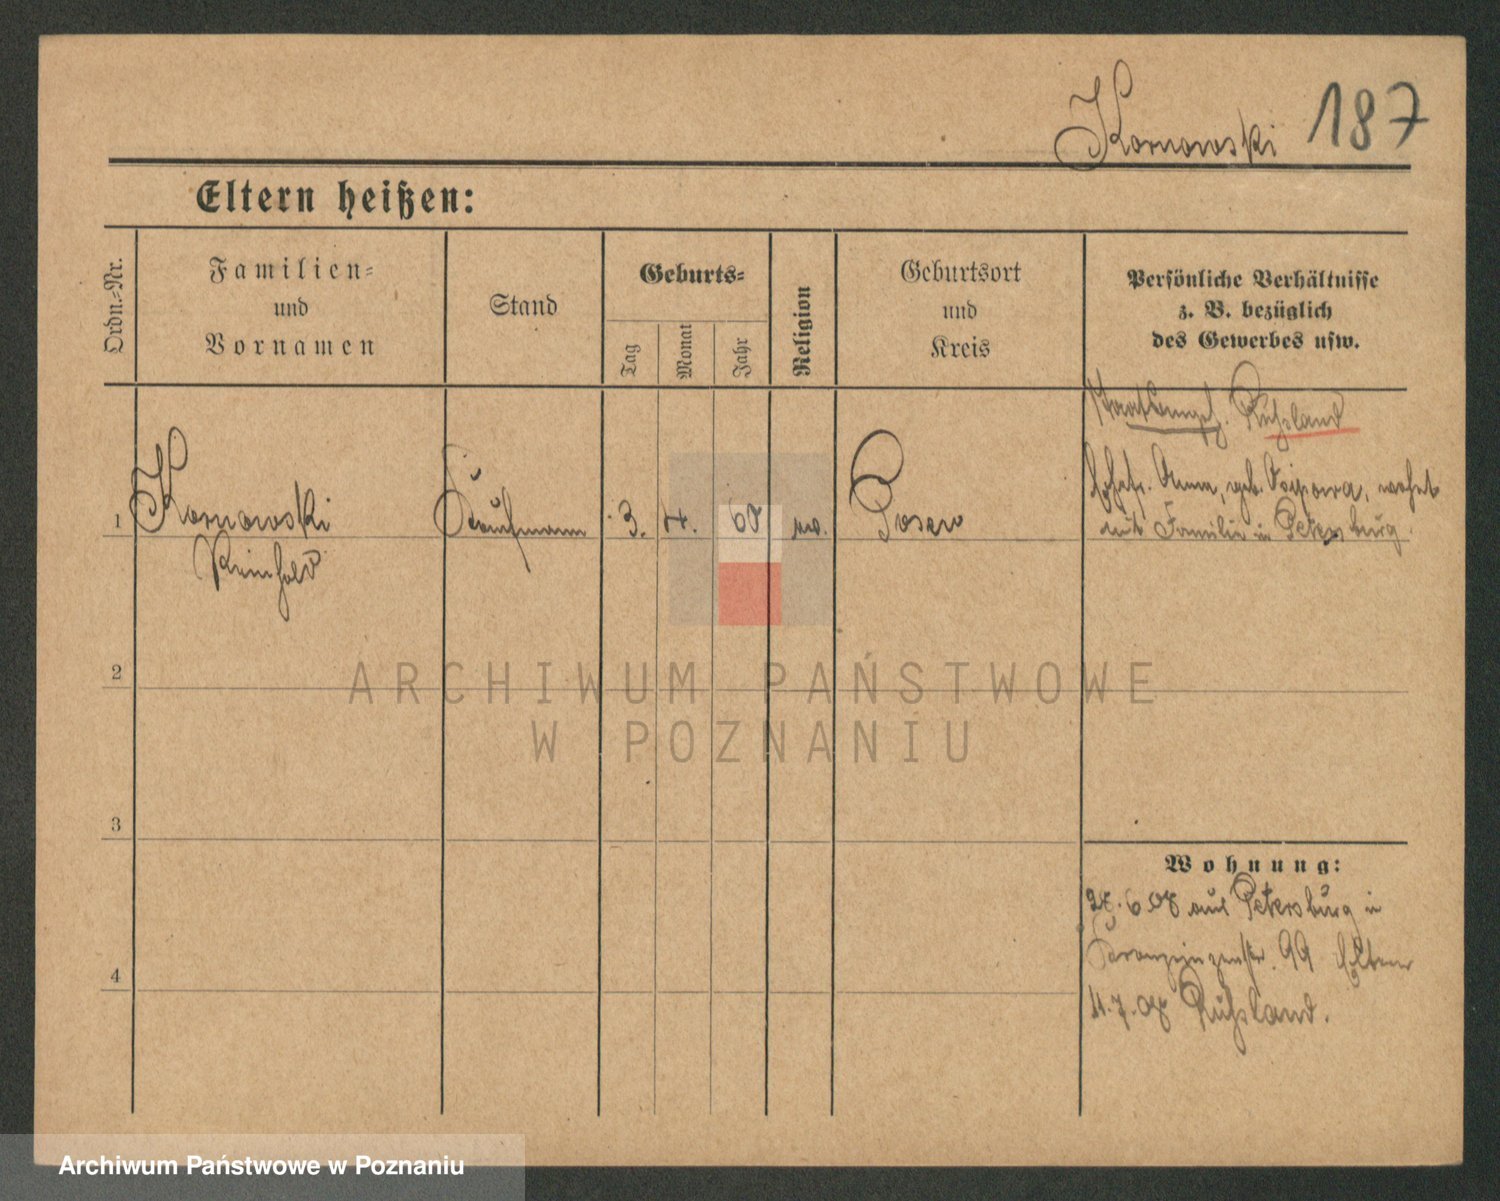 Kornowski 187
Eltern heißen:
Ordn.-Nr.
Familien-
und
Vornamen
Stand
Geburts-
Tag
Monat
Jahr
Religion
Geburtsort
und
Kreis
Persönliche Verhältnisse
z. B. bezüglich
des Gewerbes usw.
Rußland
1 Kornowski Kaufmann 3. 4. Posen
Reinhold
Anna, geb. Osipowa, wohnt
mit Familie in Petersburg.
2
3
4
Wohnung:
28.6.08 aus Petersburg in
Kronprinzenstr. 99 Eltern
11.7.08 Rußland.
ARCHIWUM PAŃSTWOWE
W POZNANIU
Archiwum Państwowe w Poznaniu